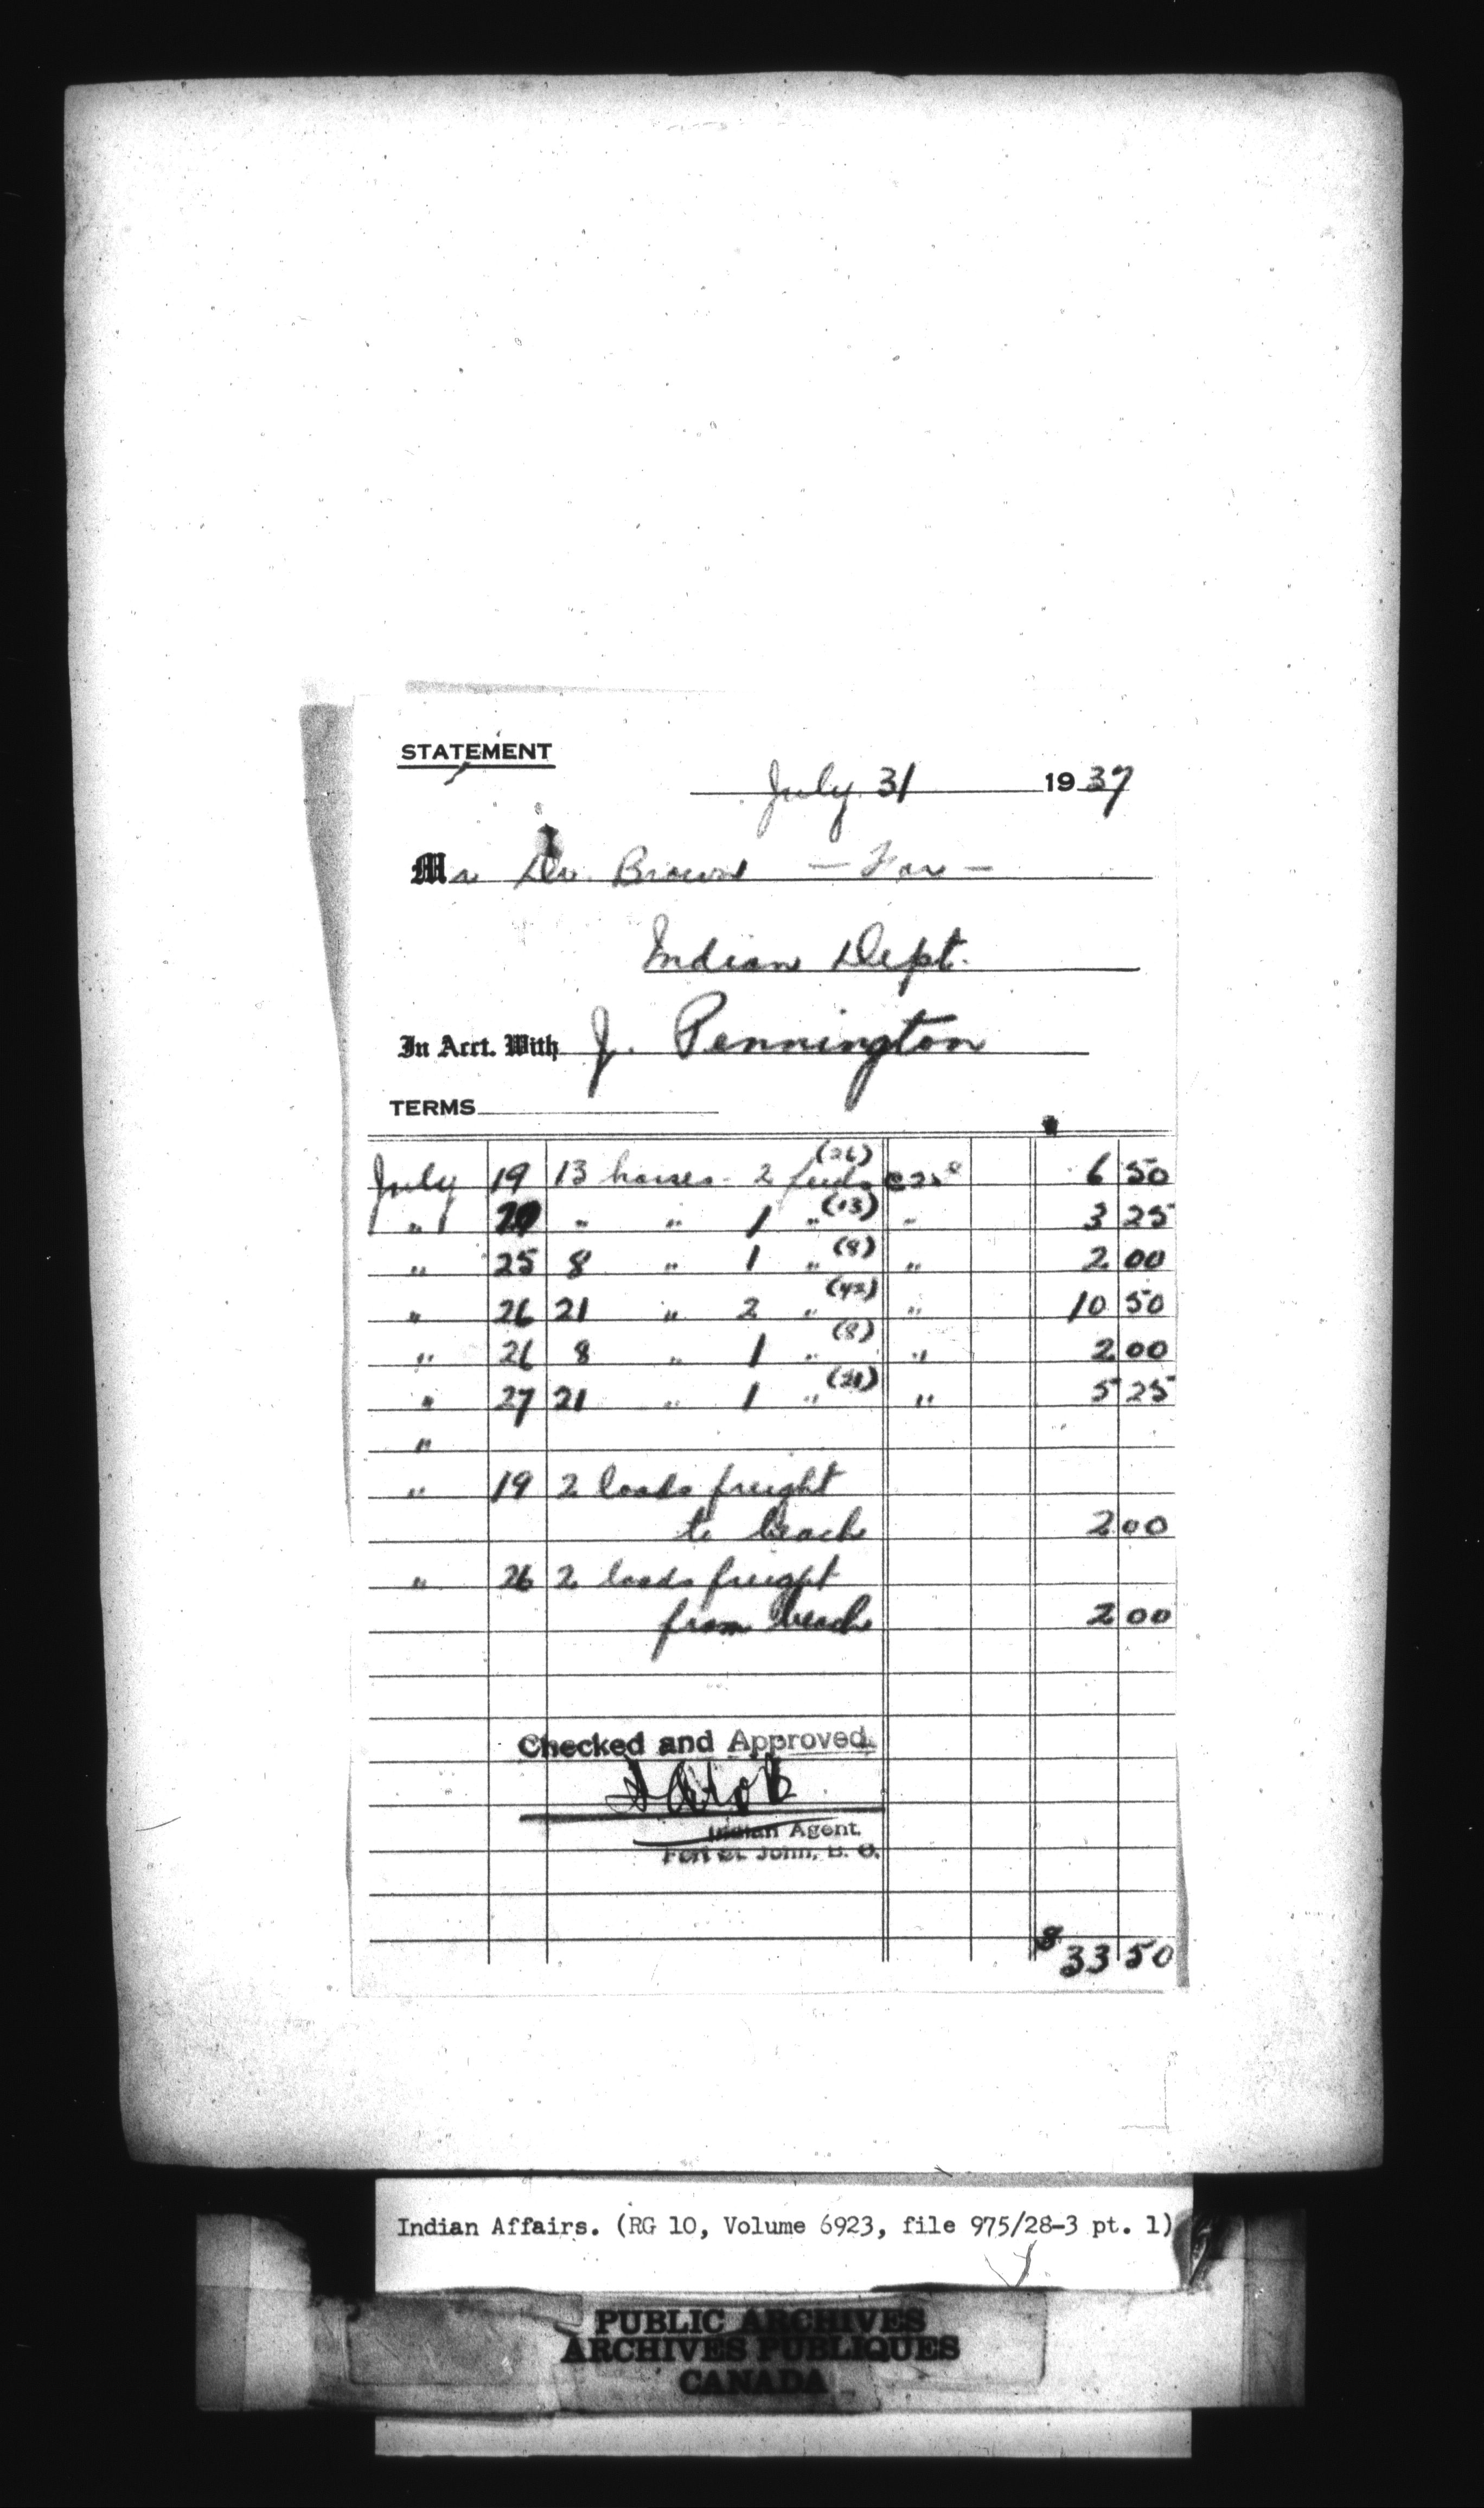 STATEMENT
July 31 1937
Mr Dr. Brown — For —
Indian Dept.
In Acct. With J. Pennington
TERMS
July 19 13 horses - 2 feeds (26) @ 25¢ 6 50
" 20 " " 1 " (13) " 3 25
" 25 8 " 1 " (8) " 2 00
" 26 21 " 2 " (42) " 10 50
" 26 8 " 1 " (8) " 2 00
" 27 21 " 1 " (21) " 5 25
"
" 19 2 loads freight
to beach 2 00
" 26 2 loads freight
from beach 2 00
Checked and Approved.
Indian Agent.
Fort St. John, B. C.
$ 33 50
Indian Affairs. (RG 10, Volume 6923, file 975/28-3 pt. 1)
PUBLIC ARCHIVES
ARCHIVES PUBLIQUES
CANADA